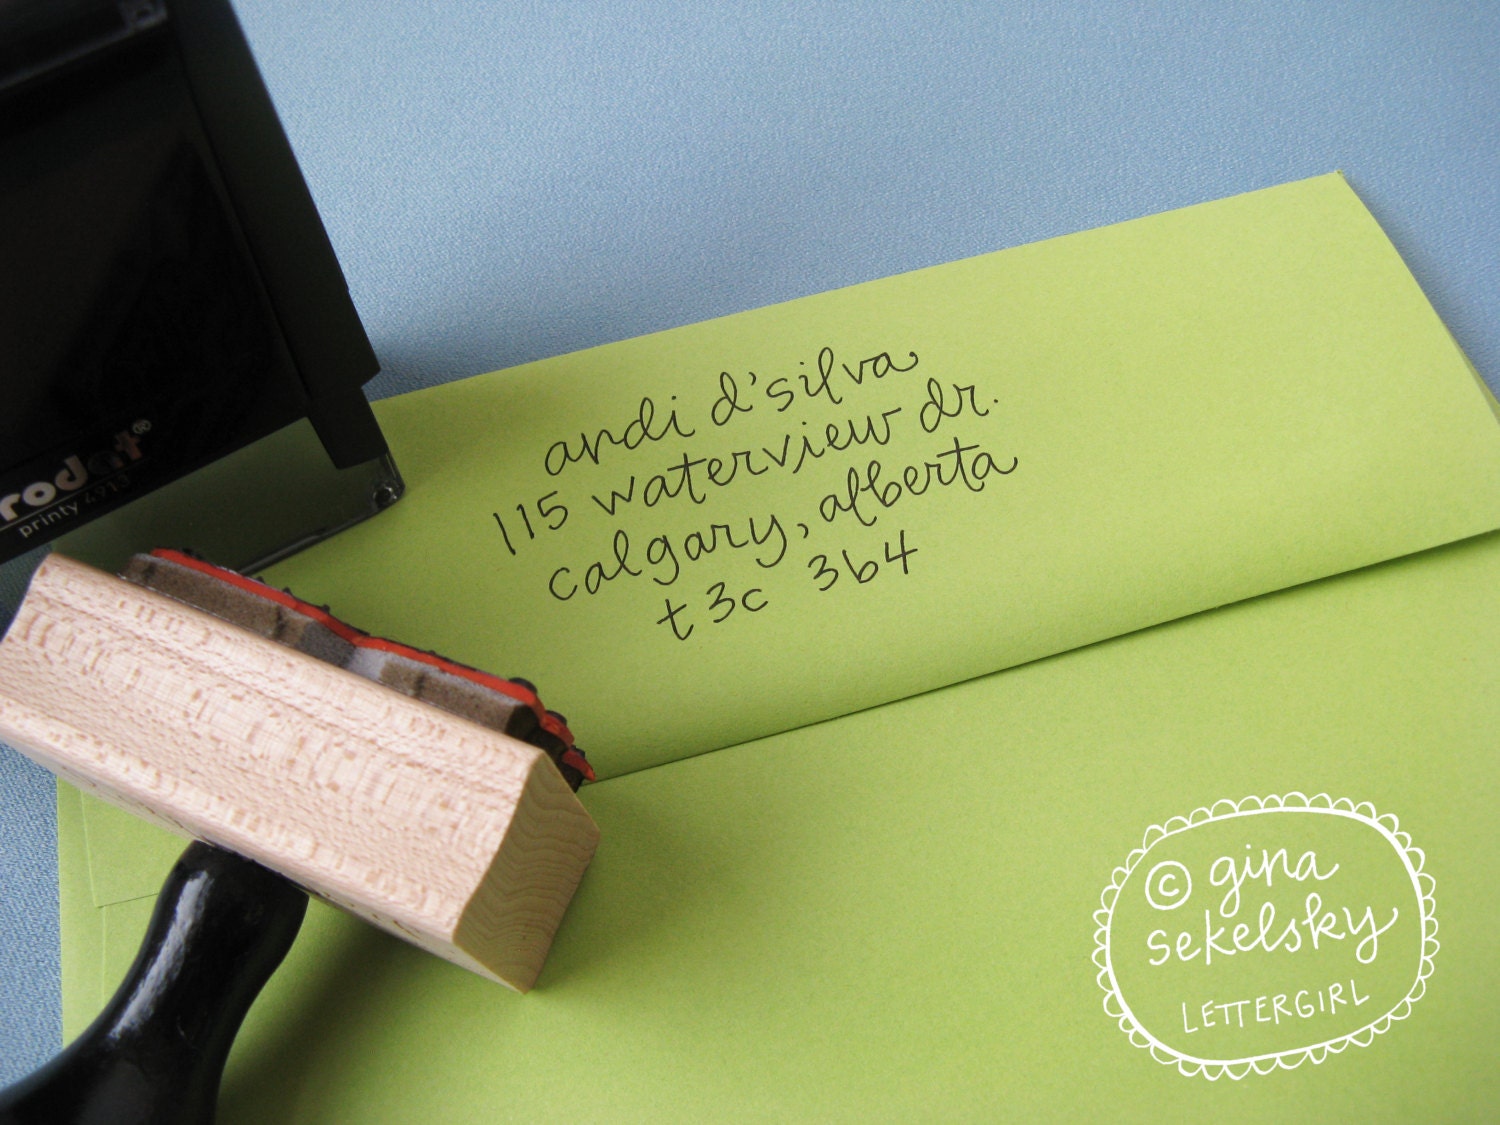 andi d'silva
115 waterview dr.
calgary, alberta
t3c 3b4
printy 4913
© gina
sekelsky
LETTERGIRL